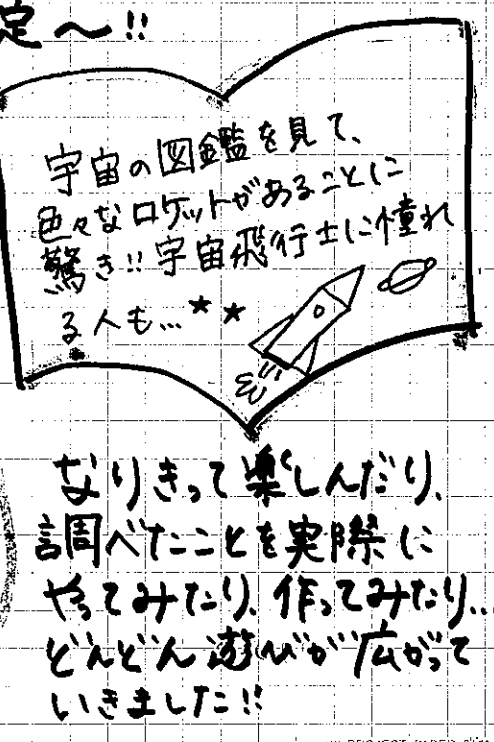 定〜!!
宇宙の図鑑を見て、
色々なロケットがあることに
驚き!!宇宙飛行士に憧れ
る人も…★★
なりきって楽しんだり、
調べたことを実際に
やってみたり、作ってみたり…
どんどん遊びが広がって
いきました!!